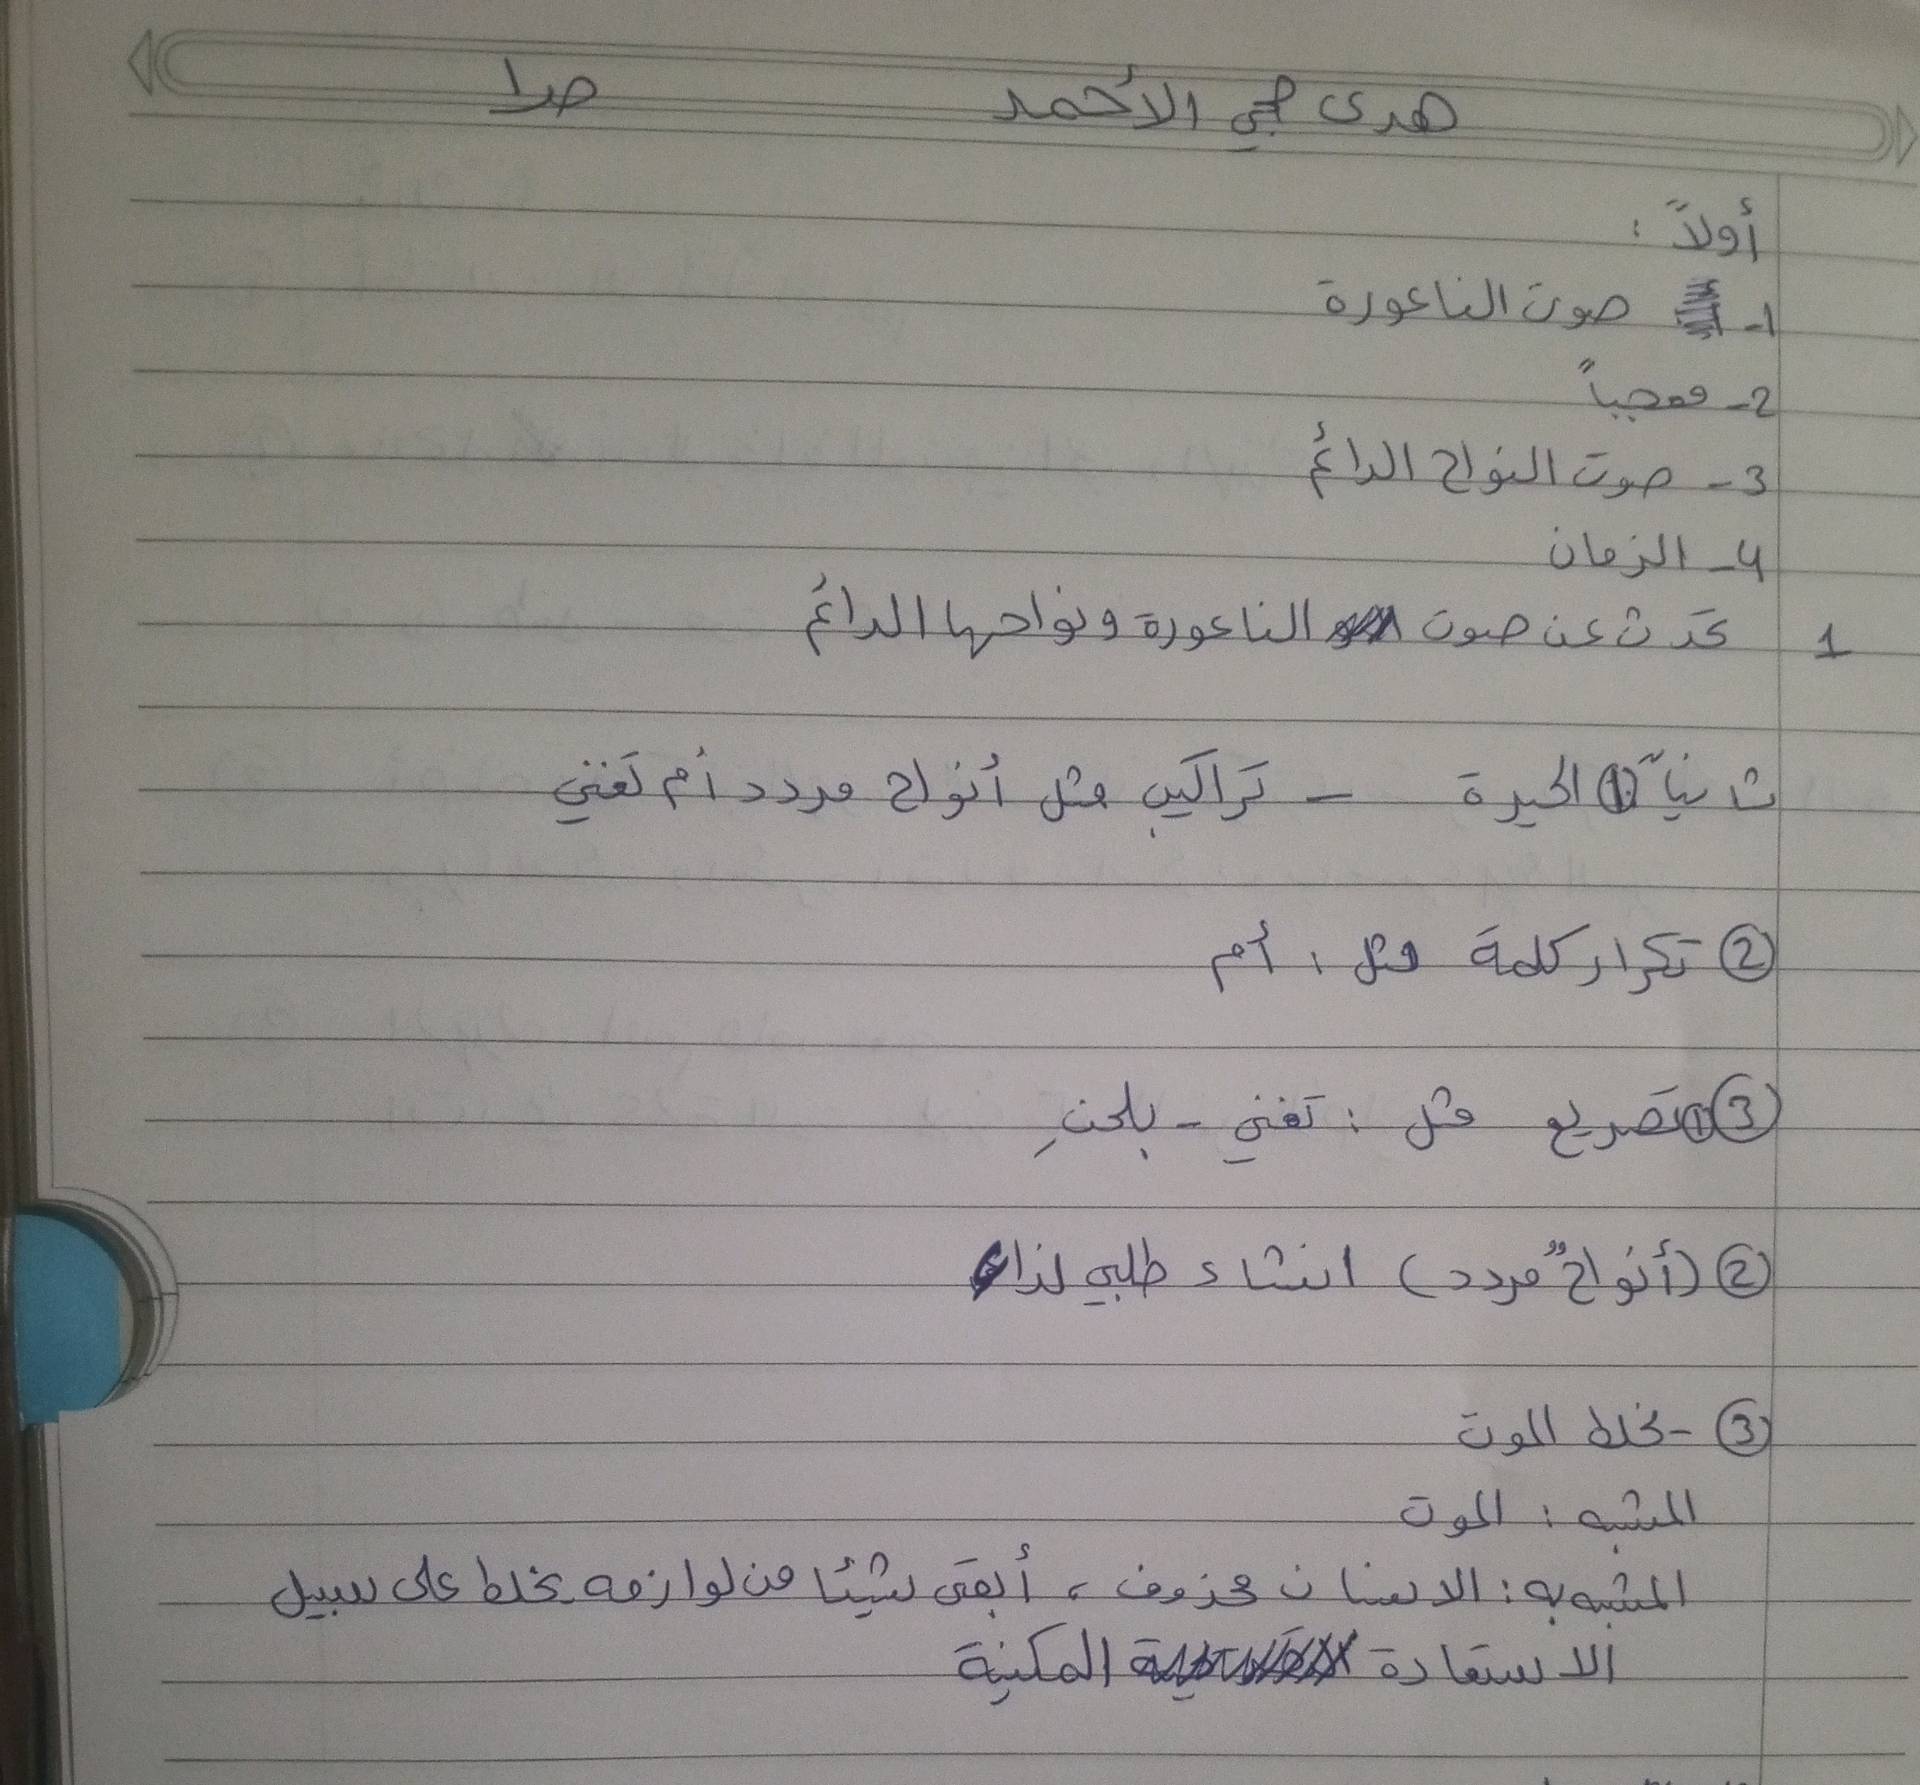 هدى الأحمد ص1
أولاً:
1- صوت الناعورة
2- معجباً
3- صوت النواح الدائم
4- الزمان
1 تحدث عن صوت الناعورة ونواحها الدائم
ثانياً ① الحيرة - تراكيب مثل أنواح مردد أم تغني
② تكرار كلمة مثل، أم
③ ① تصريع مثل: تغني - بلحنِ
② (أنواحٌ مردد) انشاء طلبي نداء
③ - يخلط الموت
المشبه: الموت
المشبه به: الانسان محذوف، أبقى شيئا من لوازمه يخلط على سبيل
الاستعارة المكنية